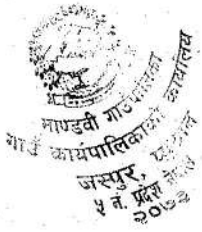 माण्डवी गाउँपालिका
गाउँ कार्यपालिकाको कार्यालय
जस्पुर,
५ नं. प्रदेश नेपाल
२०७३